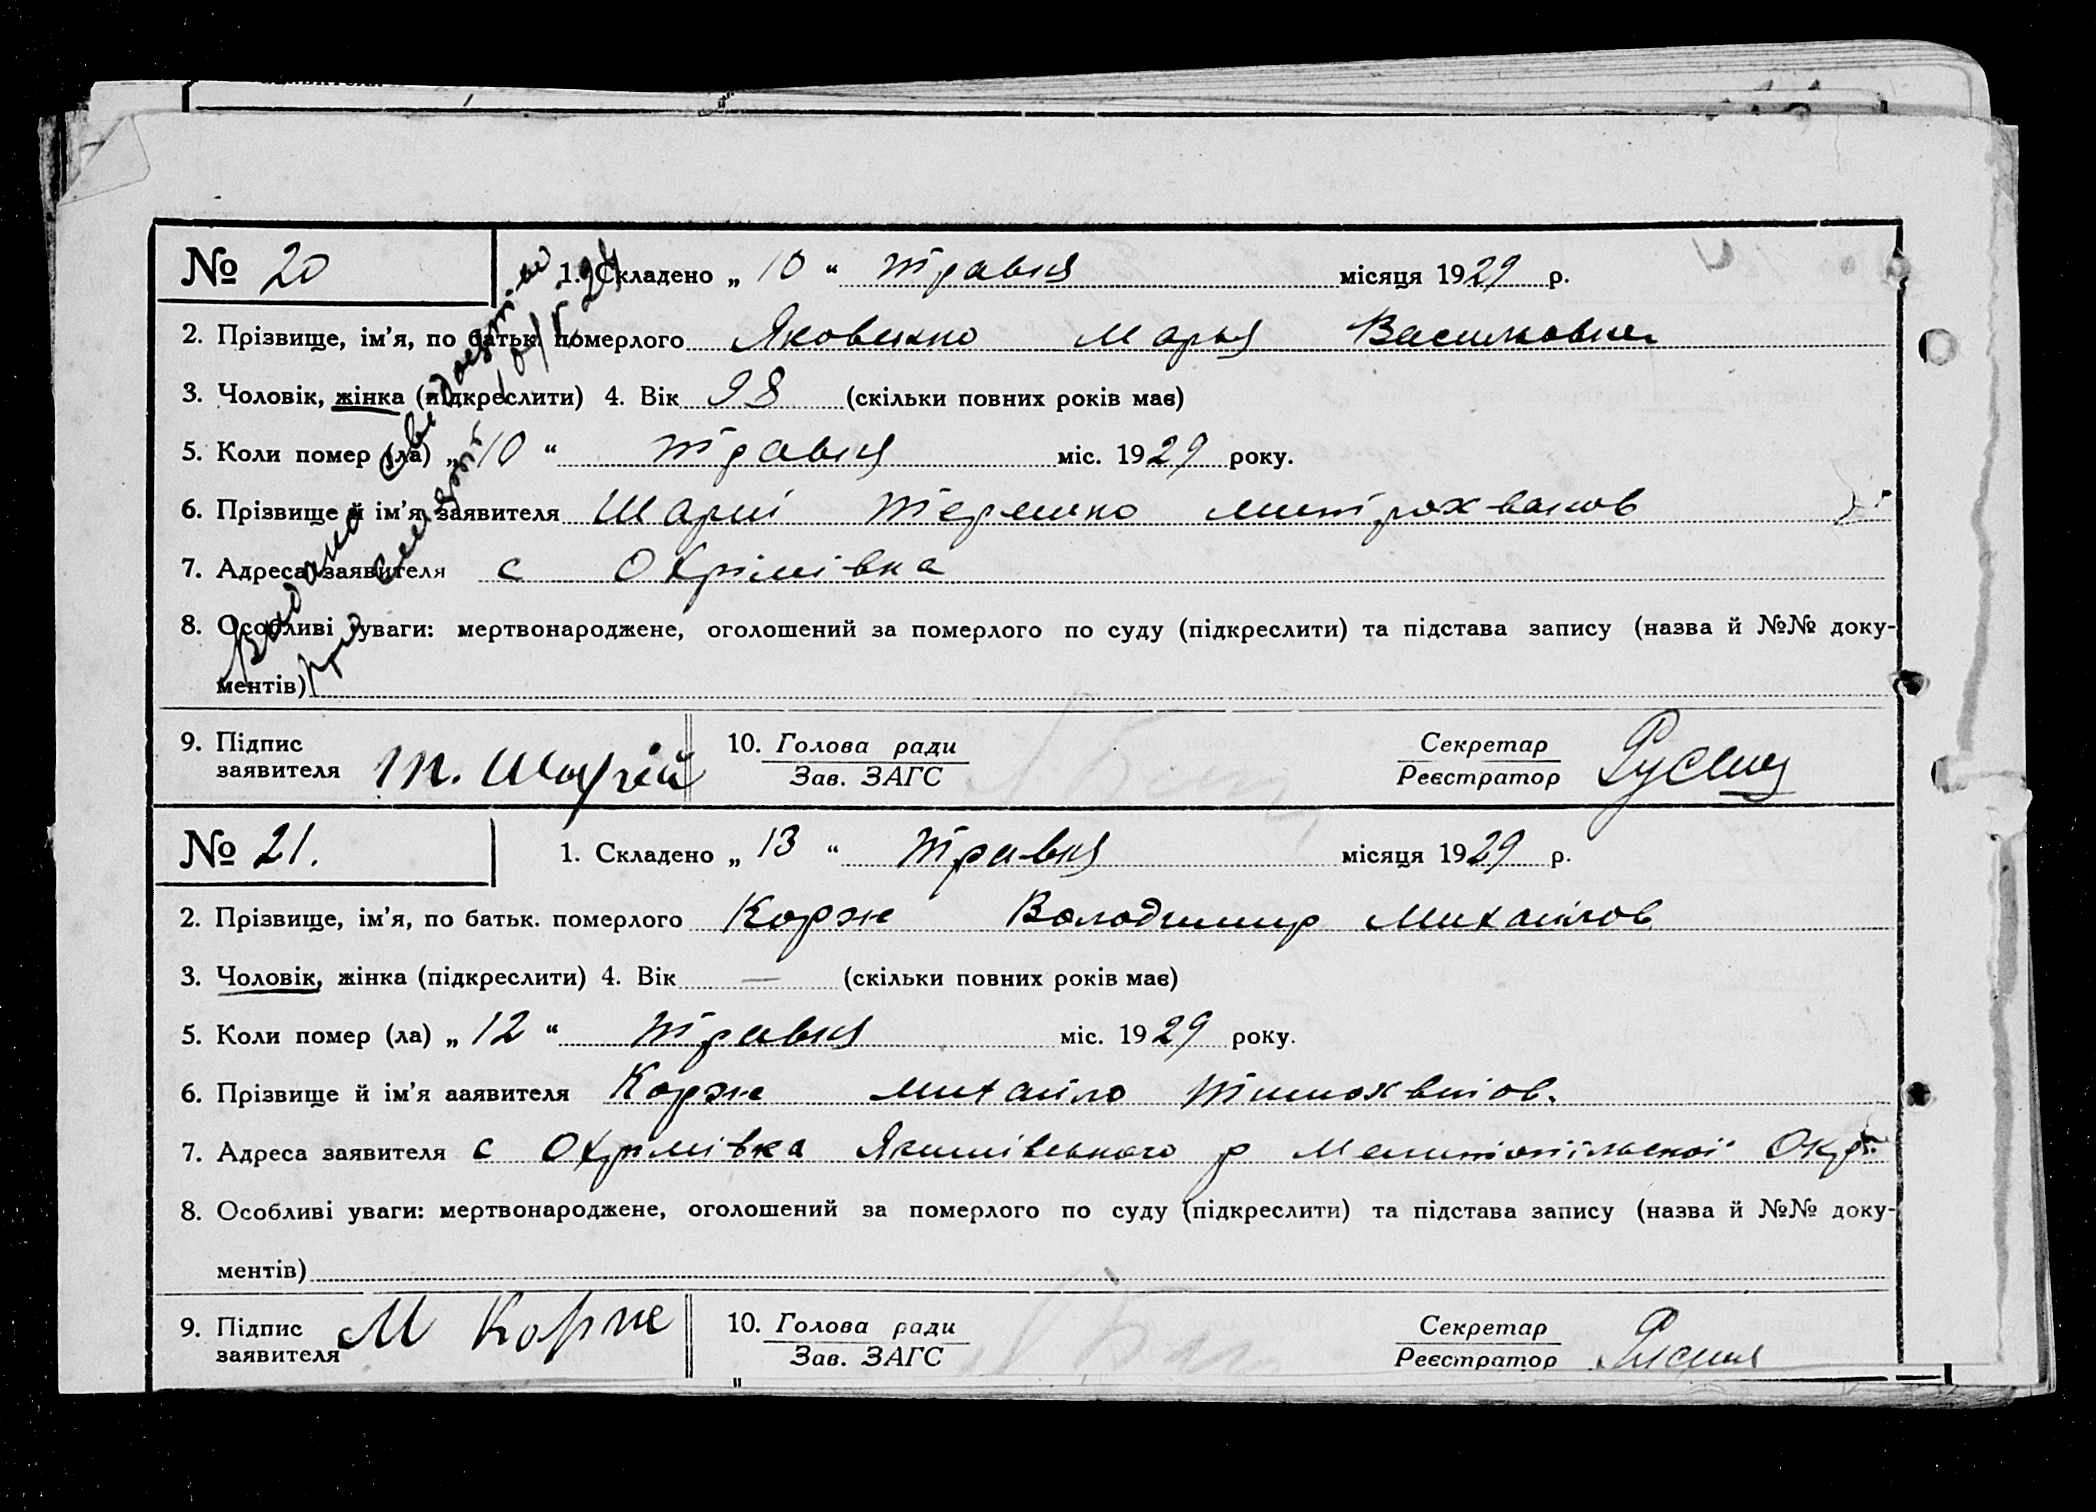 № 20
1. Складено „ 10 “ травня місяця 1929 р.
2. Прізвище, ім'я, по батьк. померлого Яковенко Марья Васильовна
3. Чоловік, жінка (підкреслити) 4. Вік 98 (скільки повних років має)
5. Коли помер (ла) „ 10 “ травня міс. 1929 року.
6. Прізвище й ім'я заявителя Шарий Терешко митрохванов
7. Адреса заявителя с Охрімівка
8. Особливі уваги: мертвонароджене, оголошений за померлого по суду (підкреслити) та підстава запису (назва й №№ доку-
ментів)
Видано свидоцтво
про смерть 10/V 29
9. Підпис заявителя Т. Шарій
10. Голова ради
Зав. ЗАГС
Секретар
Реєстратор
№ 21.
1. Складено „ 13 “ травня місяця 1929 р.
2. Прізвище, ім'я, по батьк. померлого Корж Володимир Михайлов
3. Чоловік, жінка (підкреслити) 4. Вік — (скільки повних років має)
5. Коли помер (ла) „ 12 “ травня міс. 1929 року.
6. Прізвище й ім'я ааявителя Корж михайло
7. Адреса заявителя с Охрімівка Якимівського р Мелитопільської Окр.
8. Особливі уваги: мертвонароджене, оголошений за померлого по суду (підкреслити) та підстава запису (назва й №№ доку-
ментів)
9. Підпис заявителя М Корж
10. Голова ради
Зав. ЗАГС
Секретар
Реєстратор